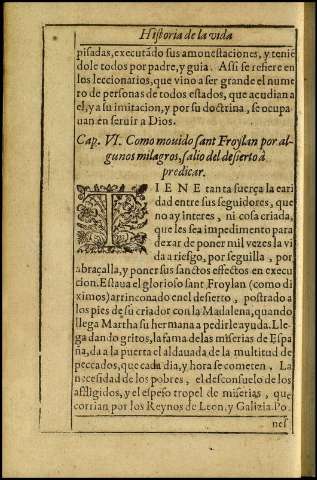 Historia de la vida
pisadas, executãdo sus amonestaciones, y tenie
dole todos por padre, y guia. Assi se refiere en
los leccionarios, que vino a ser grande el nume
ro de personas de todos estados, que acudian a
el, y a su imitacion, y por su doctrina, se ocupa
uan en seruir a Dios.
Cap. VI. Como mouido sant Froylan por al-
gunos milagros, salio del desierto à
predicar.
TIENE tanta fuerça la cari
dad entre sus seguidores, que
no ay interes, ni cosa criada,
que les sea impedimento para
dexar de poner mil vezes la vi
da a riesgo, por seguilla, por
abraçalla, y poner sus sanctos effectos en execu
cion. Estaua el glorioso sant Froylan (como di
ximos) arrinconado en el desierto, postrado a
los pies de su criador con la Madalena, quando
llega Martha su hermana a pedirle ayuda. Lle-
ga dando gritos, la fama de las miserias de Espa
ña, da a la puerta el aldauada de la multitud de
peccados, que cada dia, y hora se cometen. La
necesidad de los pobres, el desconsuelo de los
affligidos, y el espeso tropel de miserias, que
corrian por los Reynos de Leon, y Galizia. Po
nes